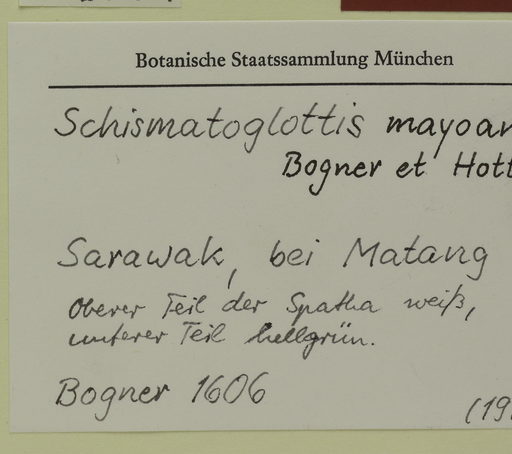 Botanische Staatssammlung München
Schismatoglottis mayoan
Bogner et Hott
Sarawak, bei Matang
Oberer Teil der Spatha weiß,
unterer Teil hellgrün.
Bogner 1606
(19